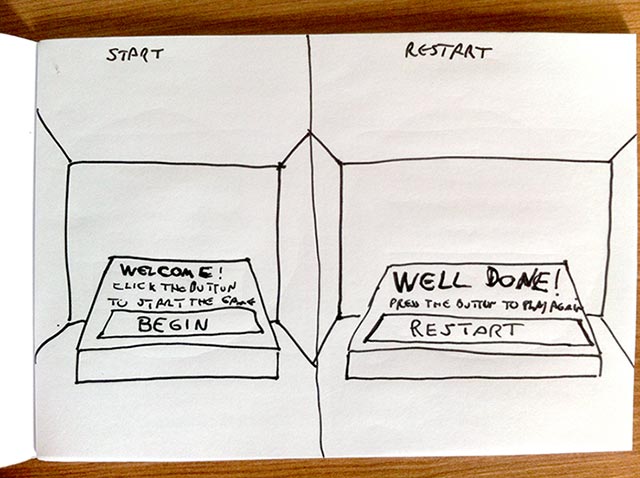 START
WELCOME!
CLICK THE BUTTON
TO START THE GAME
BEGIN
RESTART
WELL DONE!
PRESS THE BUTTON TO PLAY AGAIN
RESTART